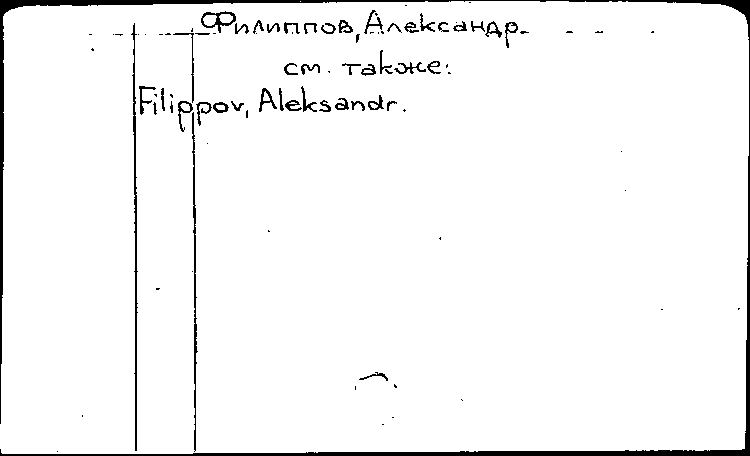 Филиппов, Александр.
см. также:
Filippov, Aleksandr.